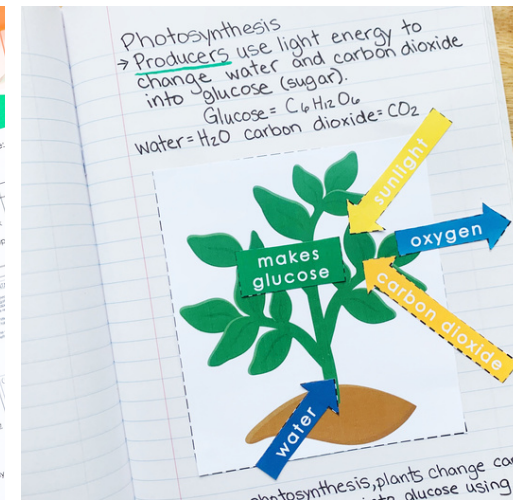 Photosynthesis
→ Producers use light energy to
change water and carbon dioxide
into glucose (sugar).
Glucose = C6H12O6
water = H2O carbon dioxide = CO2
sunlight
oxygen
makes
glucose
carbon dioxide
water
photosynthesis, plants change
into glucose using